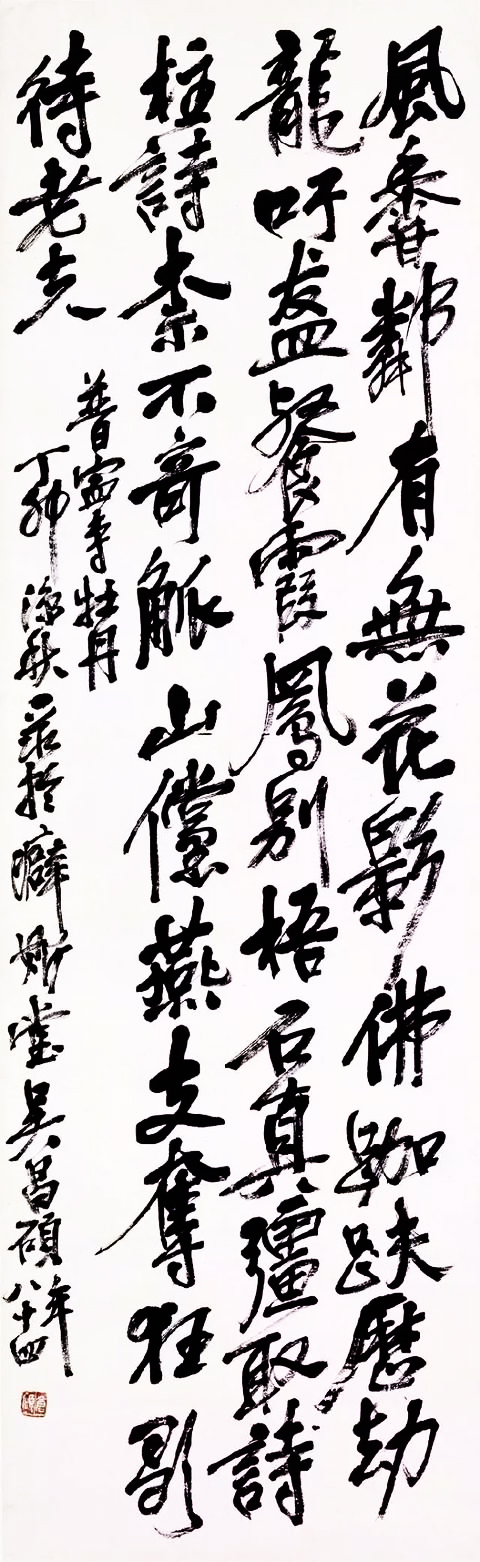 風香鄰有無花影佛跏趺歷劫
龍吁盋餐霞鳳別梧石真彊取詩
柱詩柰不奇觚山儻燕支奪狂歌
待老夫
普甯寺牡丹
丁卯涼秋录於癖斯堂吳昌碩年八十四